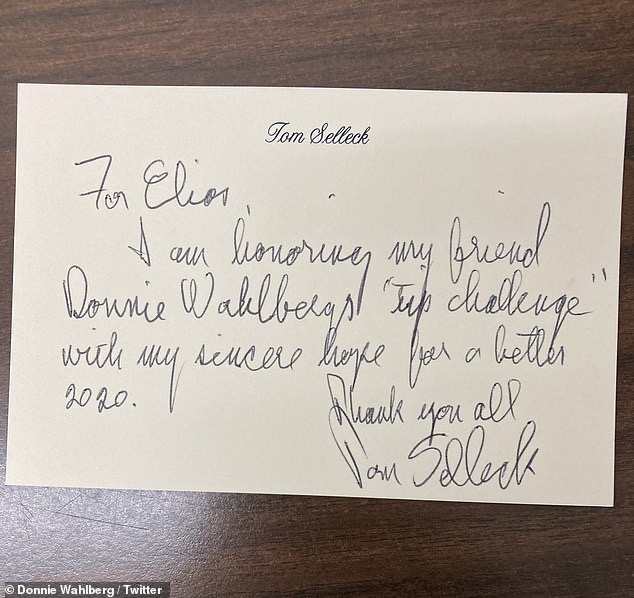 Tom Selleck
For Elios,
I am honoring my friend
Donnie Wahlbergs "tip challenge"
with my sincere hope for a better
2020.
Thank you all
Tom Selleck
© Donnie Wahlberg / Twitter